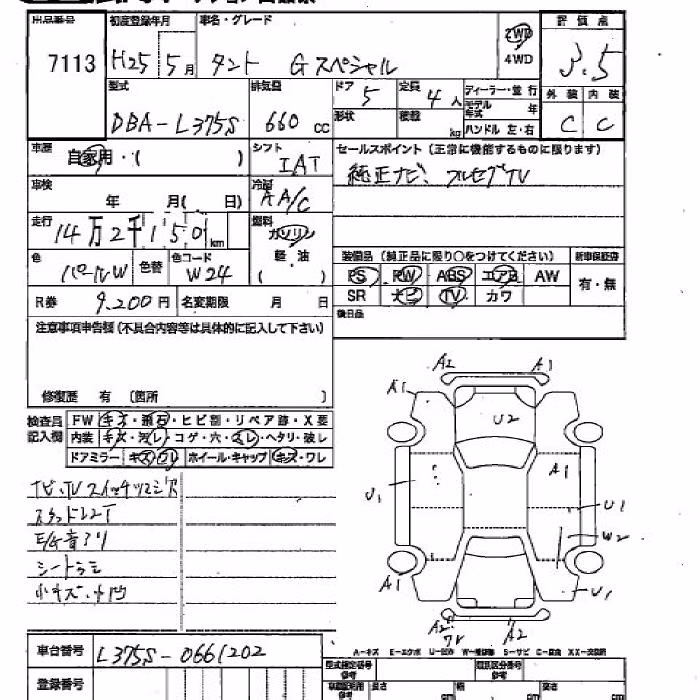 出品番号 初度登録年月 車名・グレード 2WD 評価点
7113 H25 5月 タント Gスペシャル 4WD 3.5
型式 排気量 ドア 5 定員 4人 ディーラー・並行 外装 内装
DBA-L375S 660cc 形状 積載 kg モデル年式 年 C C
ハンドル 左・右
車歴 自家用・( ) シフト IAT セールスポイント (正常に機能するものに限ります)
純正ナビ フルセグTV
車検 年 月( 日) 冷房 AA/C
走行 14万2千150km 燃料 ガソリン
軽・油
( )
色 パールW 色替 色コード W24 装備品 (純正品に限り○をつけてください) 新車保証書
PS PW ABS エアB AW 有・無
R券 9,200円 名変期限 月 日 SR ナビ TV カワ
後日品
注意事項申告欄 (不具合内容等は具体的に記入して下さい)
修復歴 有 〔箇所 〕
検査員記入欄
FW キズ・飛石・ヒビ割・リペア跡・X要
内装 キズ・汚レ・コゲ・穴・スレ・ヘタリ・破レ
ドアミラー キズ ワレ ホイール・キャップ キズ・ワレ
E/G音アリ
シート
小キズ・
A2 A1
A1
U2
A1
U1 U1
W2
A1 U1
A2 ワレ A2
車台番号 L375S-0661202
登録番号
A-キズ E-エクボ U-凹み W-補修跡 S-サビ C-腐食 XX-交換済
型式指定番号 参考 類別区分番号 参考
長さ 幅 高さ